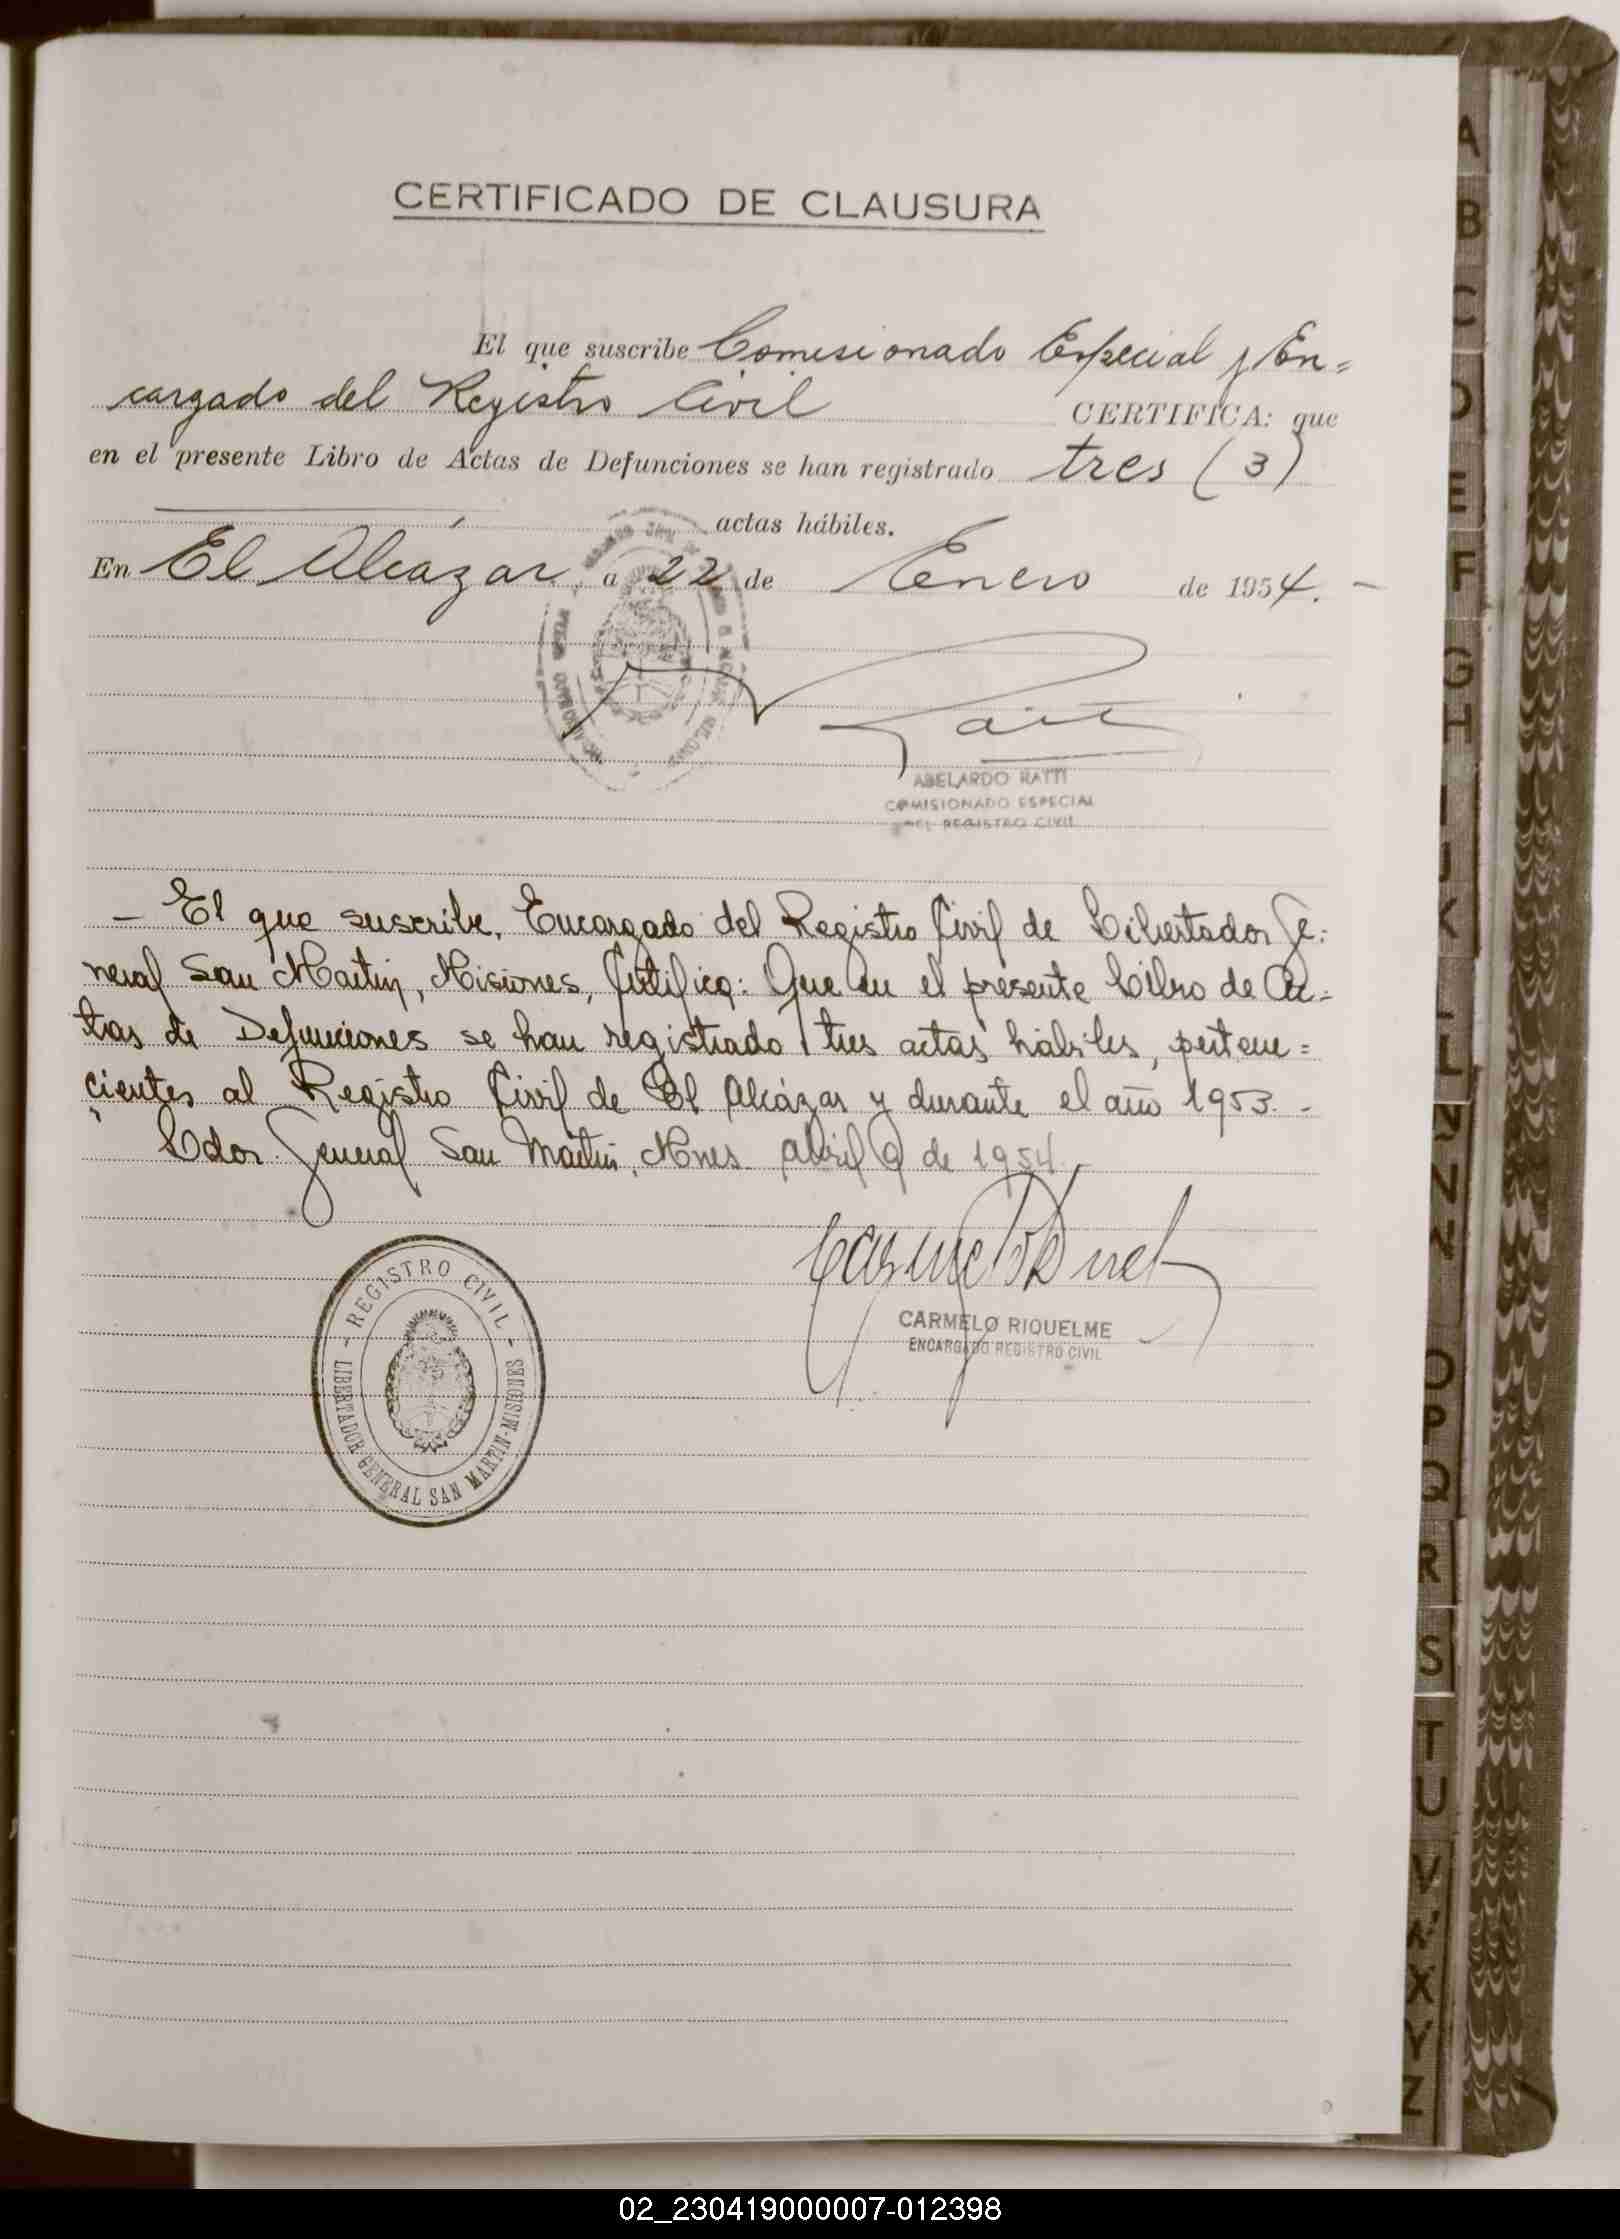 CERTIFICADO DE CLAUSURA
El que suscribe Comisionado Especial y En=
cargado del Registro Civil CERTIFICA: que
en el presente Libro de Actas de Defunciones se han registrado tres (3)
actas hábiles.
En El Alcázar a 22 de Enero de 1954.-
ABELARDO RATTI
COMISIONADO ESPECIAL
DEL REGISTRO CIVIL
- El que suscribe, Encargado del Registro Civil de Libertador Ge=
neral San Martin, Misiones, Certifica: Que en el presente Libro de Ac=
tas de Defunciones se han registrado tres actas hábiles, pertene=
cientes al Registro Civil de El Alcázar y durante el año 1953.-
Ldor. General San Martin, Mnes. Abril 9 de 1954.-
CARMELO RIQUELME
ENCARGADO REGISTRO CIVIL
- REGISTRO CIVIL -
LIBERTADOR GENERAL SAN MARTIN-MISIONES
A
B
C
D
E
F
G
H
I
J
K
L
LL
N
Ñ
O
P
Q
R
S
T
U
V
W
X
Y
Z
02_230419000007-012398